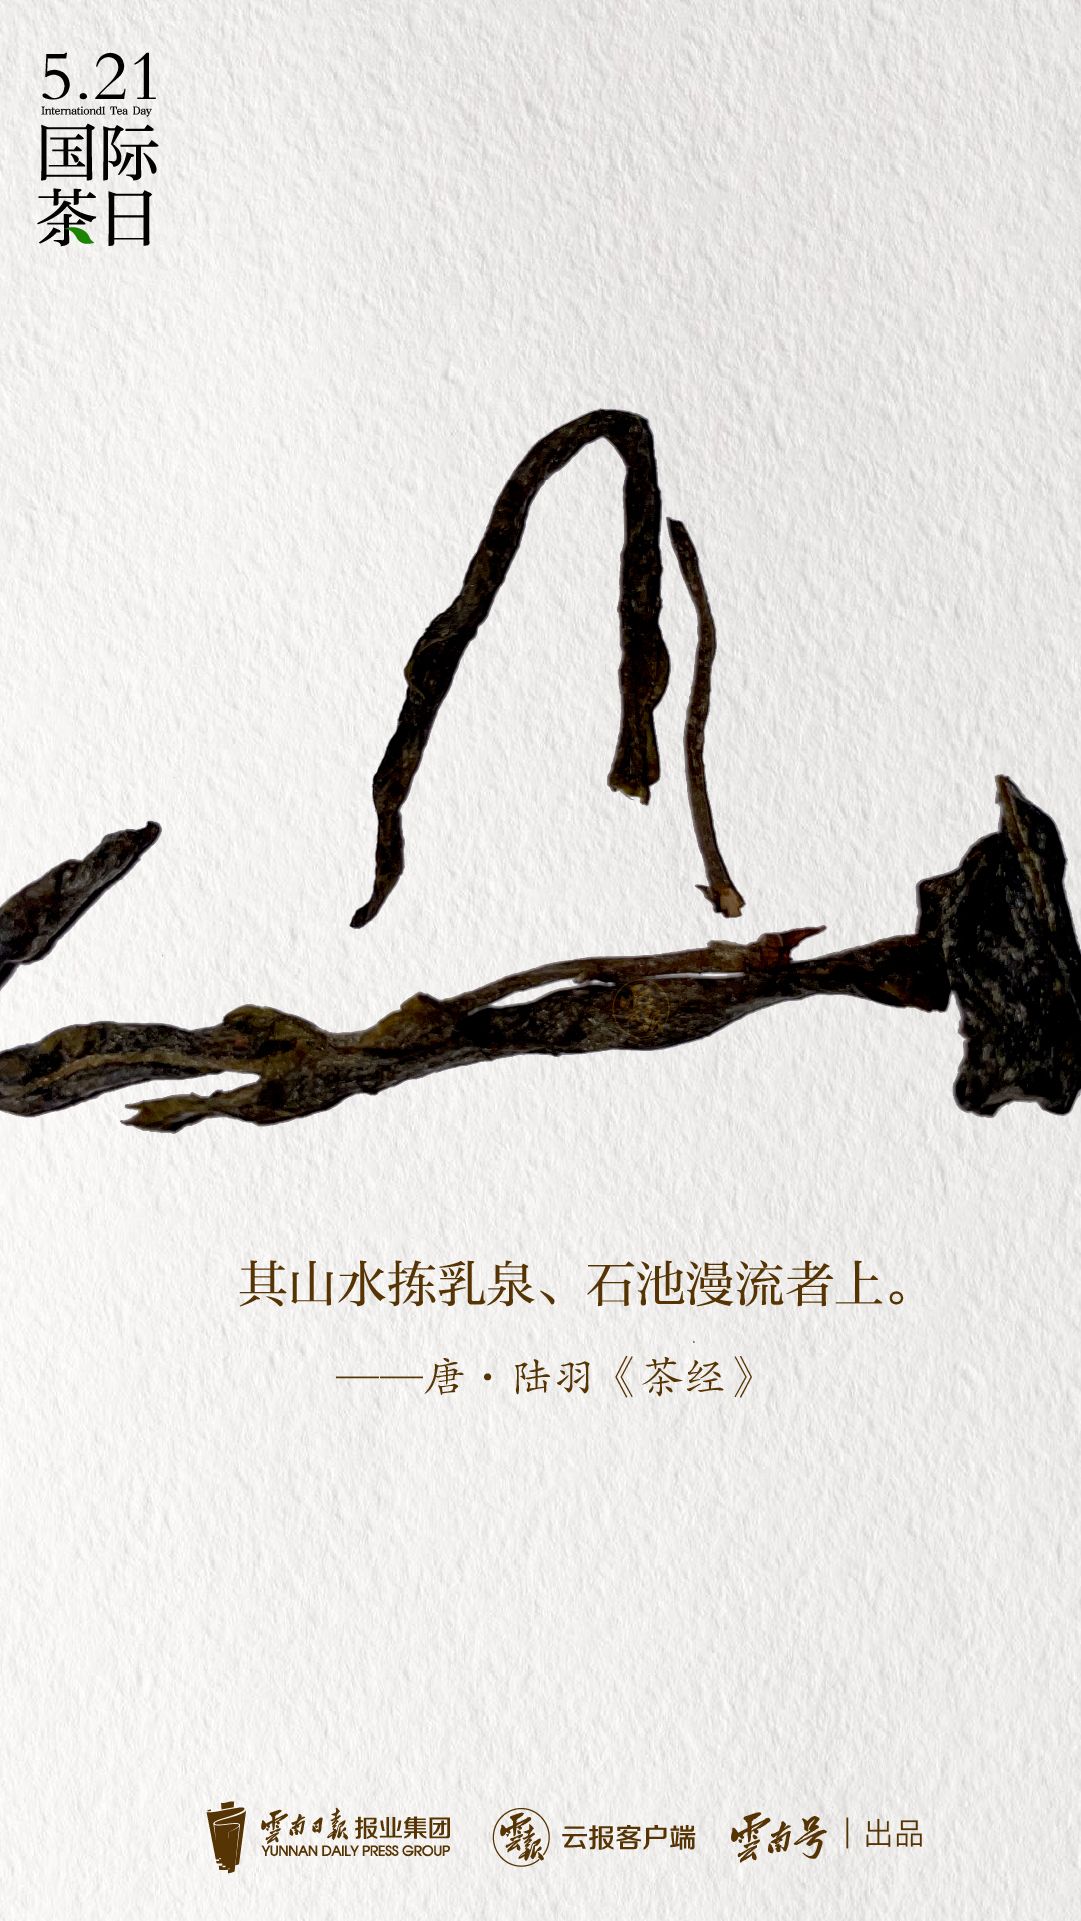 5.21
Internationdl Tea Day
国际
茶日
其山水拣乳泉、石池漫流者上。
——唐·陆羽《茶经》
雲南日报 报业集团
YUNNAN DAILY PRESS GROUP
雲报
云报客户端
雲南号
出品